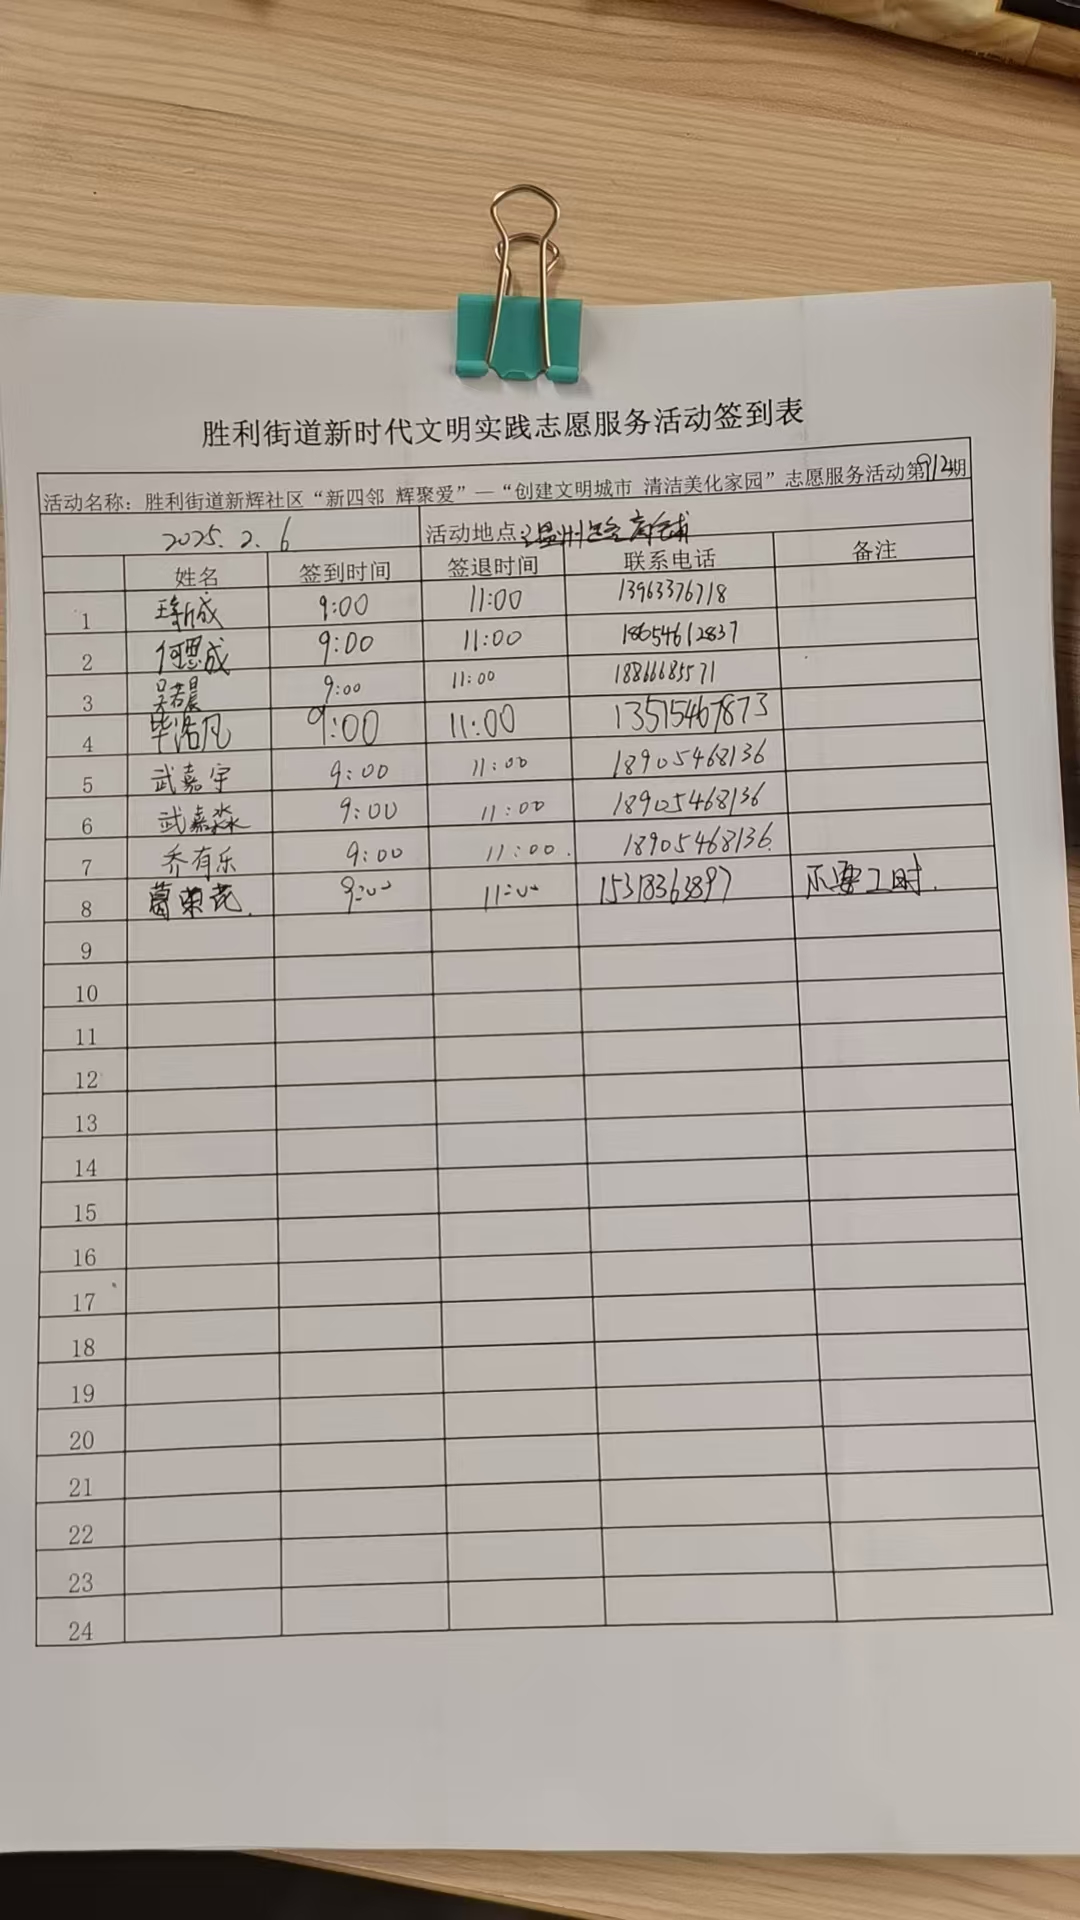 胜利街道新时代文明实践志愿服务活动签到表
活动名称：胜利街道新辉社区“新四邻 辉聚爱”—“创建文明城市 清洁美化家园”志愿服务活动第912期
2025.2.6 活动地点：温州 商铺
姓名 签到时间 签退时间 联系电话 备注
1 成 9:00 11:00 13963376718
2 何思成 9:00 11:00 18654612837
3 吴若晨 9:00 11:00 18866685571
4 毕浩凡 9:00 11:00 13515467873
5 武嘉宇 9:00 11:00 18905468136
6 武嘉淼 9:00 11:00 18905468136
7 乔有乐 9:00 11:00. 18905468136.
8 葛荣花. 9:00 11:00 15318363897 不要工时.
9
10
11
12
13
14
15
16
17
18
19
20
21
22
23
24